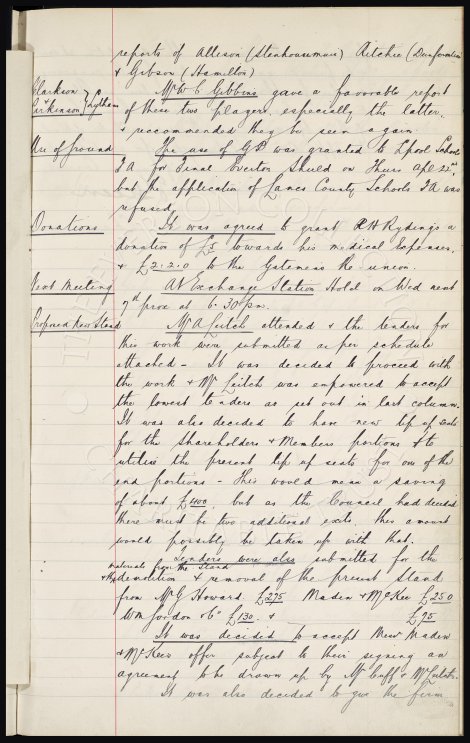 reports of Allison (Stenhousemuir) Aitchie (Dunfermline)
& Gibson (Hamilton)
Clarkson & Parkinson } Lytham
Mr W C Gibbins gave a favorable report
of these two players, especially the latter.
& recommended they be seen again.
Use of Ground
The use of Gd was granted to L'pool Schools
FA for Final Everton Shield on Thurs Apl 22nd,
but the application of Lancs County Schools FA was
refused.
Donations
It was agreed to grant R H Rydings a
donation of £5 towards his medical Expenses.
& £2.2.0 to the Gateness Re-union.
Next Meeting
At Exchange Station Hotel on Wed next
7th prox at 6.30 pm.
Proposed New Stand
Mr A Leitch attended & the tenders for
this work were submitted as per schedule
attached - It was decided to proceed with
the work & Mr Leitch was empowered to accept
the lowest tenders as set out in last column.
It was also decided to have new tip up seats
for the Shareholders & Members portions & to
utilise the present tip up seats for one of the
end portions - This would mean a saving
of about £400, but as the Council had decided
there must be two additional exits, this amount
would possibly be taken up with that.
Tenders were also submitted for the
materials from the Stand
& the demolition & removal of the present Stand
from Mr G Howard £275 Maden & McKee £250
Wm Gordon & Co £130. & £95
It was decided to accept Messrs Maden
& McKees offer subject to their signing an
agreement to be drawn up by Mr Cuff & Mr Leitch.
It was also decided to give the firm